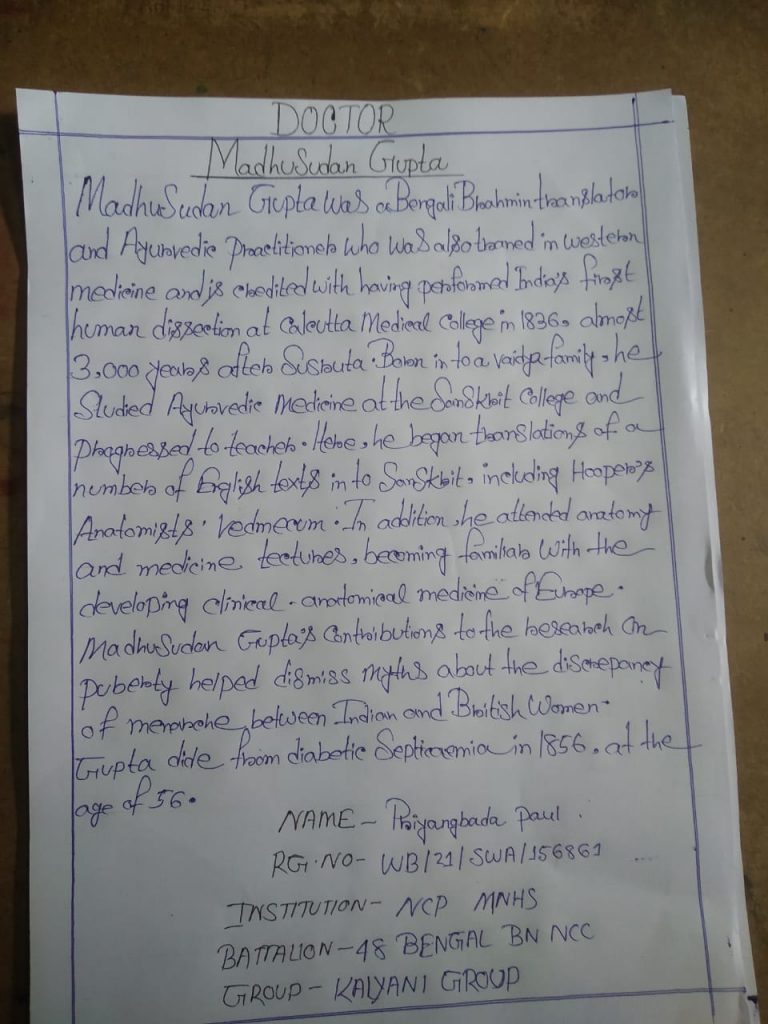 DOCTOR
MadhuSudan Gupta
MadhuSudan Gupta was a Bengali Brahmin translator
and Ayurvedic Practitioner who was also trained in western
medicine and is credited with having performed India's first
human dissection at Calcutta Medical College in 1836, almost
3,000 years after Susruta. Born in to a vaidya family, he
Studied Ayurvedic Medicine at the Sanskrit College and
progressed to teacher. Here, he began translations of a
number of English texts in to Sanskrit, including Hooper's
Anatomists' Vedmecum. In addition, he attended anatomy
and medicine tectures, becoming familiar with the
developing clinical-anatomical medicine of Europe.
MadhuSudan Gupta's Contributions to the research on
puberty helped dismiss myths about the discrepancy
of menarche between Indian and British Women.
Gupta dide from diabetic Septicaemia in 1856, at the
age of 56.
NAME - Priyangbada Paul.
RG. NO- WB/21/SWA/156861
INSTITUTION- NCP MNHS
BATTALION - 48 BENGAL BN NCC
GROUP - KALYANI GROUP